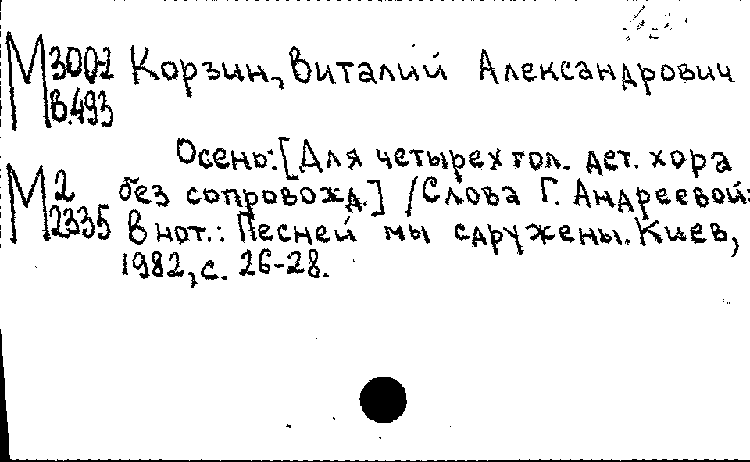 М 3002 Корзин, Виталий Александрович
В.493
Осень: [Для четырех гол. дет. хора
М 2 без сопровожд.] /Слова Г. Андреевой:
2335 В нот.: Песней мы сдружены. Киев,
1982, с. 26-28.